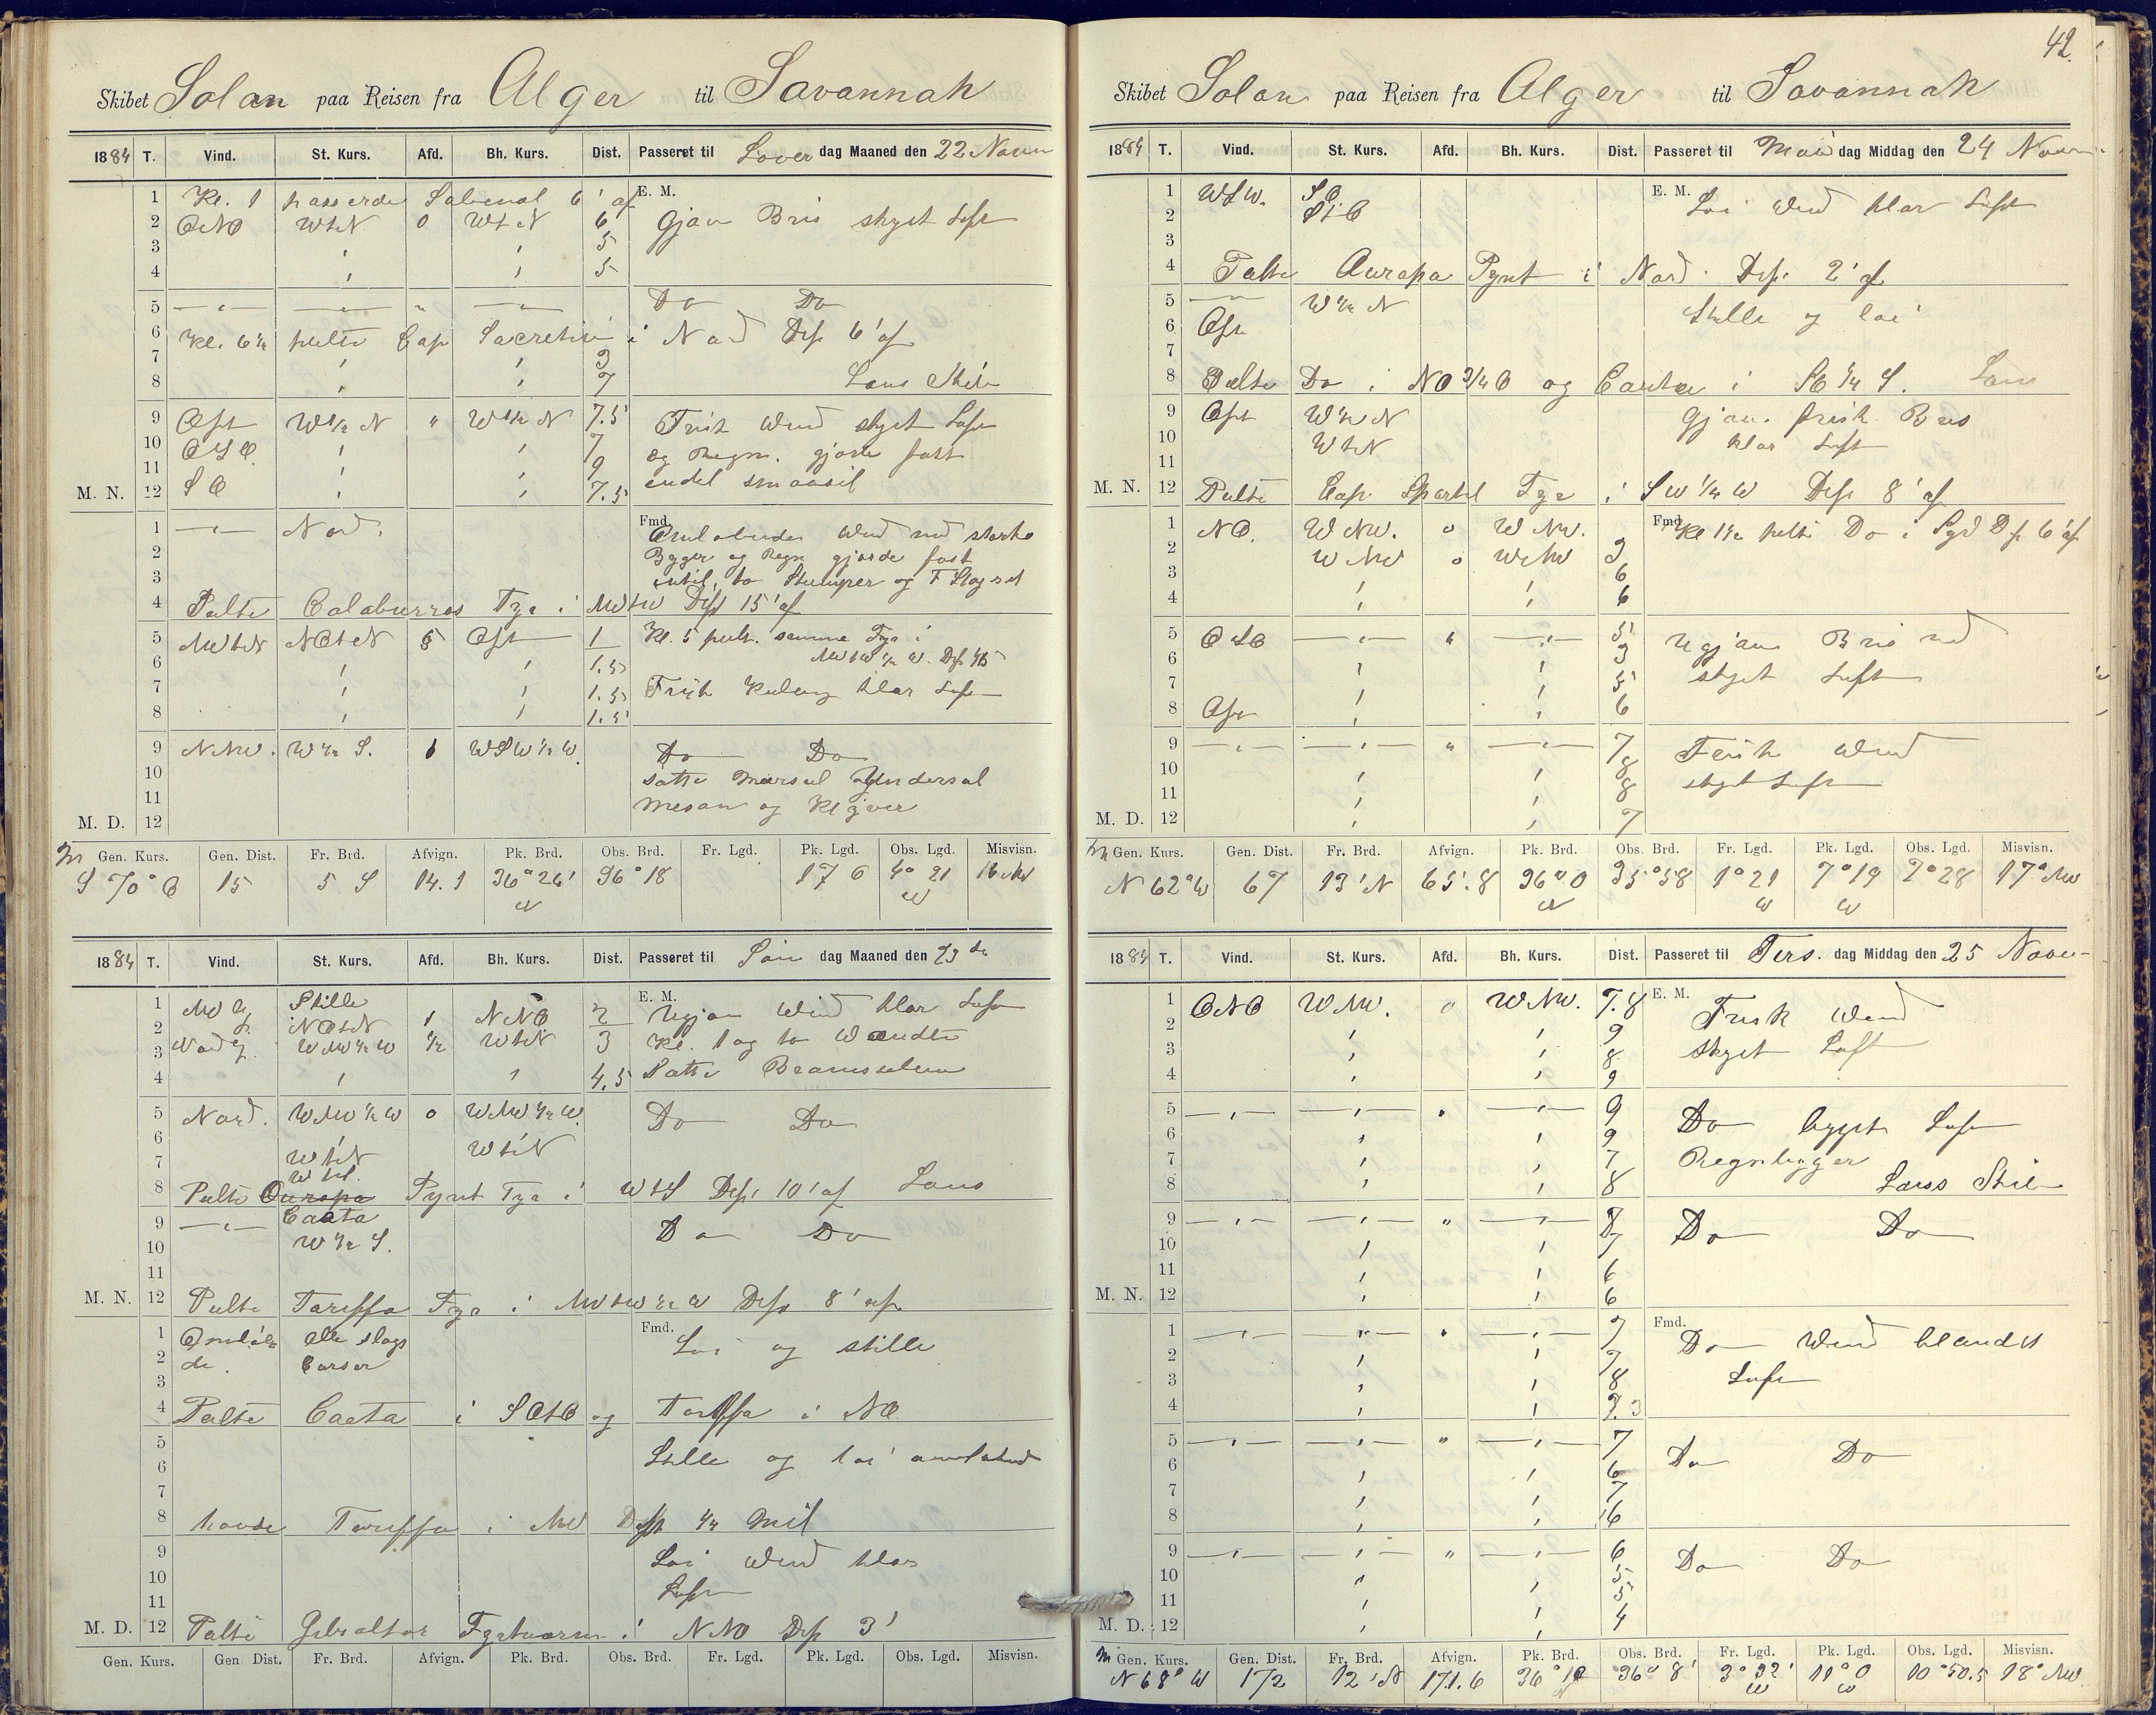 Skibet Solan paa Reisen fra Alger til Savannah
1884 T. Vind. St. Kurs. Afd. Bh. Kurs. Dist. Passeret til Löver dag Maaned den 22 Novem
1 Kl. 1 passerde 6' af E. M.
2 ONO WtN 0 WtN 6 Gjan Bris skyet Luft
3 " " 5
4 " " 5
5 — " — — " — " — " — Do Do
6 Kl. 6½ peilte Cap Sacretiv i Nord Dist 6' af
7 " "
8 " " 7 Lans Skin
9 Ost W½N " W½N 7.5 Frisk Wind skyet Luft
10 OSO " " 7 og Regn. gjorde fast
11 " " 9 endel smaaseil
M. N. 12 SO " " 7.5
1 — " — Nord. Fmd. Omlobende Wind med starke
2 Bygger og Regn gjorde fast
3 intil to Stumper og F Stagseil
4 Peilte Calaburras Fyr i NWtW Dist 15' af
5 NWtN NOtN 5 Ost 1 Kl. 5 peilte samme Fyr i
6 " " 1.5 NWtW½W. Dist
7 " " 1.5 Frisk Kuling klar Luft
8 " " 1.5
9 NNW. W½S. WSW½W. Do Do
10 satte Mersseil Underseil
11 Mesan og Klyver
M. D. 12
Gen. Kurs. Gen. Dist. Fr. Brd. Afvign. Pk. Brd. Obs. Brd. Fr. Lgd. Pk. Lgd. Obs. Lgd. Misvisn.
S 70° O 15 5 S 14.1 36° 26' N 36° 18 17 O 4° 21 W 16 NW
1884 T. Vind. St. Kurs. Afd. Bh. Kurs. Dist. Passeret til Søn dag Maaned den 23 de
1 NW Stille E. M. Ugjan Wind klar Luft
2 NOtN 1 NNO 2
3 Nord WNW½W ½ WtN 3 Kl. 1 og to Wendte
4 " " 4.5 Satte Bramseilene
5 Nord. WNW½W 0 WNW½W. Do Do
6
7 WtN WtN
WtS.
8 Peilte Ouropa Pynt Fyr i WtS Dist 10' af Lans
9 — " — Caata Do Do
10 W½S.
11
M. N. 12 Peilte Tariffa Fyr i NWtW½W Dist 8' af
1 Omlöben alle slags Fmd. Loi og stille
2 de. Corser
3
4 Peilte Caeta i SOtO og Tariffa i NO
5 Stille og loi omlobend
6
7
8 havde Tariffa i NW Dist ¼ Mil
9 Loi Wind klar
10 Luft
11
M. D. 12 Peilte Gibraltar Fyrtaarn i NNO Dist 3'
Gen. Kurs. Gen Dist. Fr. Brd. Afvign. Pk. Brd. Obs. Brd. Fr. Lgd. Pk. Lgd. Obs. Lgd. Misvisn.
42.
Skibet Solan paa Reisen fra Alger til Savannah
1884 T. Vind. St. Kurs. Afd. Bh. Kurs. Dist. Passeret til Man dag Middag den 24 Novem
1 WSW. SO. E. M. Loi Wind klar Luft
2 StO
3
4 Peilte Auropa Pynt i Nord. Dist. 2' af
5 — " — W½N Stille og loi
6 Ost
7
8 Peilte Do i NO 3/4 O og Cauta i SO ¼ S. Lans
9 Ost W½N Gjan. frisk Bris
10 WtN klar Luft
11
M. N. 12 Peilte Cap Spartel Fyr i SW ¼ W Dist 8' af
1 NO. WNW. 0 WNW. Fmd. Kl 1½ peilte Do i Syd Dist 6' af
2 WNW 0 WNW
3 " " 6
4 " " 6
5 OSO — " — " — " — 5 Ugjan Bris med
6 " " skyet Luft
7 " " 5
8 Ost " " 6
9 — " — — " — " — " — 7 Frisk Wind
10 " " 8 skyet Luft
11 " " 8
M. D. 12 " " 7
Gen. Kurs. Gen. Dist. Fr. Brd. Afvign. Pk. Brd. Obs. Brd. Fr. Lgd. Pk. Lgd. Obs. Lgd. Misvisn.
N 62° W 67 13' N 65'.8 36° 0 N 35° 58 1° 21 W 7° 19 W 7° 28 17° NW
1884 T. Vind. St. Kurs. Afd. Bh. Kurs. Dist. Passeret til Tirs. dag Middag den 25 Novem
1 ONO WNW. 0 WNW. 7.8 E. M. Frisk Wind
2 " " 9
3 " " 8 skyet Luft
4 " " 9
5 — " — — " — " — " — 9 Do bygget Luft
6 " " 9
7 " " 7 Regnbygger
8 " " 8 Lans Skin
9 — " — — " — " — " — 8 Do Do
10 " " 7
11 " " 6
M. N. 12 " " 6
1 — " — — " — " — " — 7 Fmd. Do Wind blandet
2 " " 7
3 " " 8 Luft
4 " "
5 — " — — " — " — " — 7 Do Do
6 " " 6
7 " " 7
8 " " 6
9 — " — — " — " — " — 6 Do Do
10 " " 5
11 " " 5
M. D. 12 " " 4
Gen. Kurs. Gen. Dist. Fr. Brd. Afvign. Pk. Brd. Obs. Brd. Fr. Lgd. Pk. Lgd. Obs. Lgd. Misvisn.
N 68° W 172 12' N 171.6 36° 10 N 36° 8' 3° 32' W 11° 0 W 10° 50.5 18° NW.